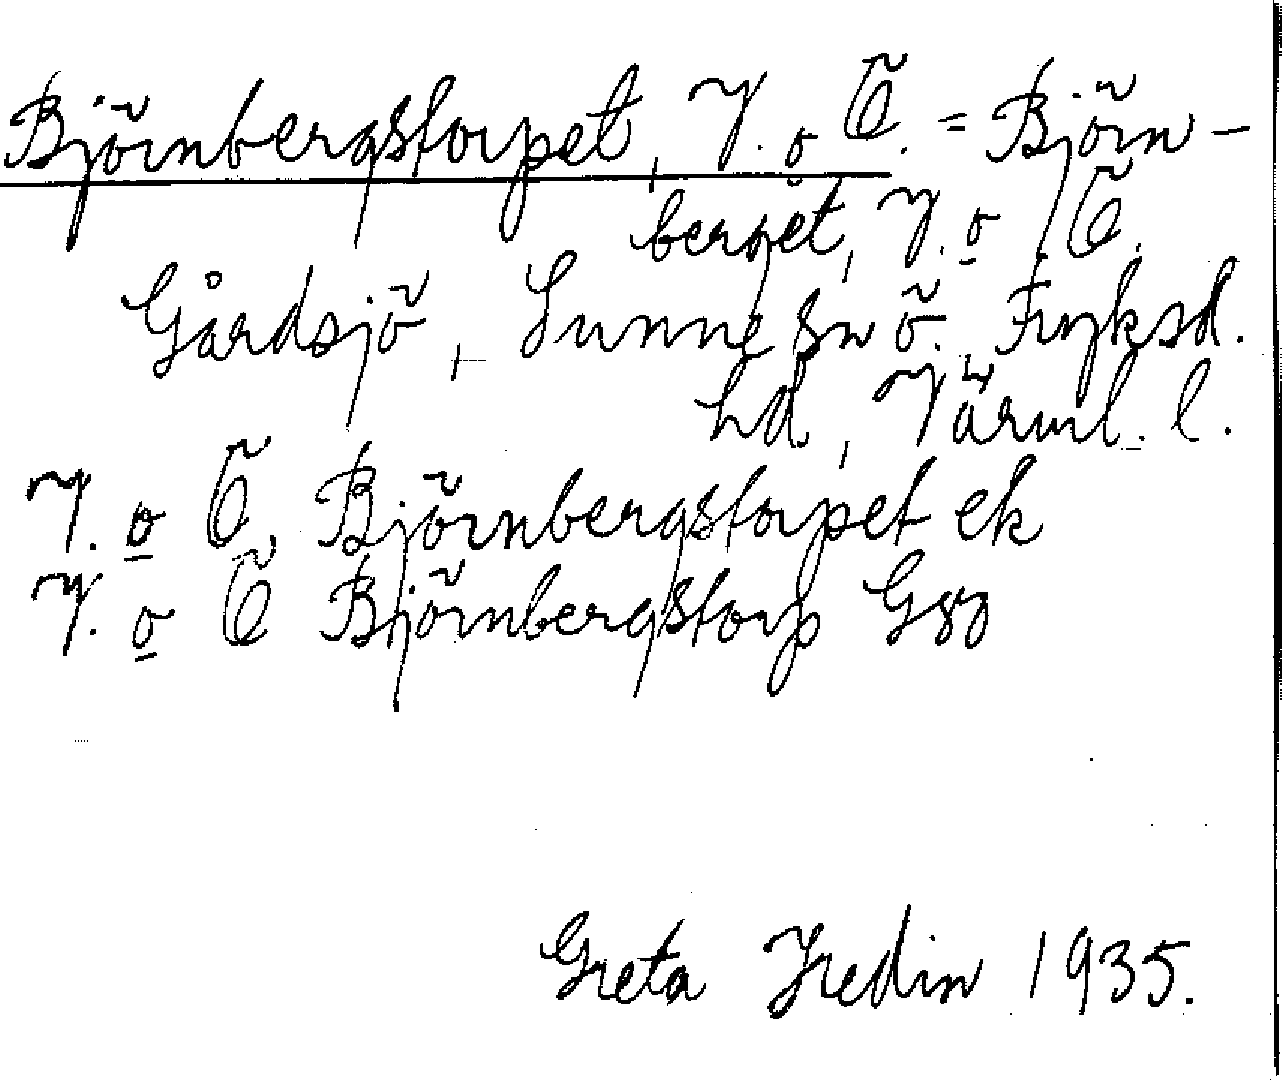 Björnbergstorpet, V. o Ö. = Björn-
berget, V. o Ö.
Gårdsjö, Sunne sn Ö. Fryksd.
hd, Värml. l.
V. o Ö. Björnbergstorpet ek
V. o Ö Björnbergstorp
Greta Hedin 1935.